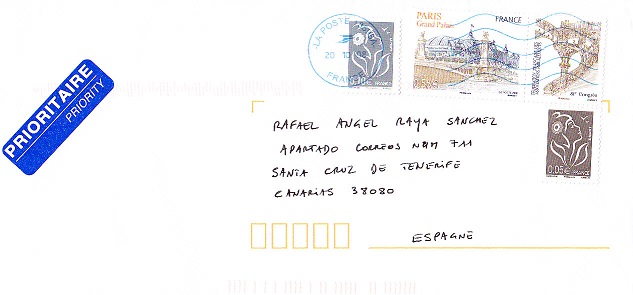 LA POSTE
20 10
FRANCE
PARIS
Grand Palais
FRANCE
81e Congrès
PRIORITAIRE
PRIORITY
RAFAEL ANGEL RAYA SANCHEZ
APARTADO CORREOS NUM 711
SANTA CRUZ DE TENERIFE
CANARIAS 38080
0,05€ FRANCE
ESPAGNE